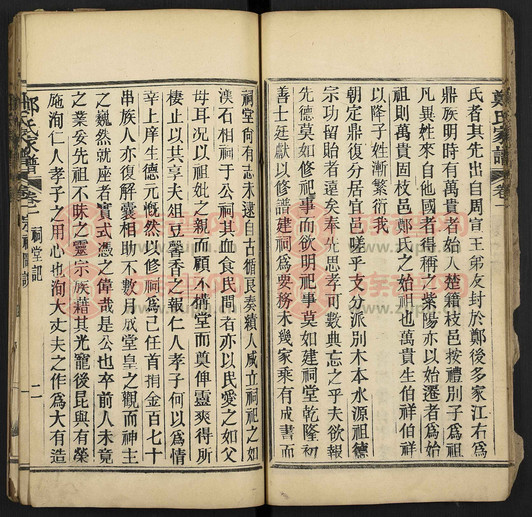 氏者其先出自周宣王弟友封於鄭後多家江右為
鼎族明時有萬貴者始人楚籍枝邑按禮別子為祖
凡異姓來自他國者得稱之紫陽亦以始遷者為始
祖則萬貴固枝邑鄭氏之始祖也萬貴生伯祥伯祥
以降子姓漸繁衍我
朝定鼎復分居宜邑嗟乎支分派別木本水源祖德
宗功留貽者遠矣奉先思孝可數典忘之乎夫欲報
先德莫如修祀事而欲明祀事莫如建祠堂乾隆初
善士廷獻以修譜建祠為要務未幾家乘有成書而
祠堂尚有志未逮自古循良奏績人咸立祠祀之如
渙石相祠于公祠其血食民間者亦以民愛之如父
母耳況以祖妣之親而顧不借堂而奠俾靈爽得所
棲止以其享夫俎豆馨香之報仁人孝子何以為情
辛上庠生德元慨然以修祠為己任首捐金百七十
串族人亦復解囊相助不數月成堂皇之觀而神主
之巍然就座者實式憑之偉哉是公也卒前人未竟
之業妥先祖不昧之靈宗族藉其光寵後昆與有榮
施洵仁人孝子之用心也洵大丈夫之作為大有造
鄭氏家譜
卷一
祠堂記
二
鄭氏家譜
卷一